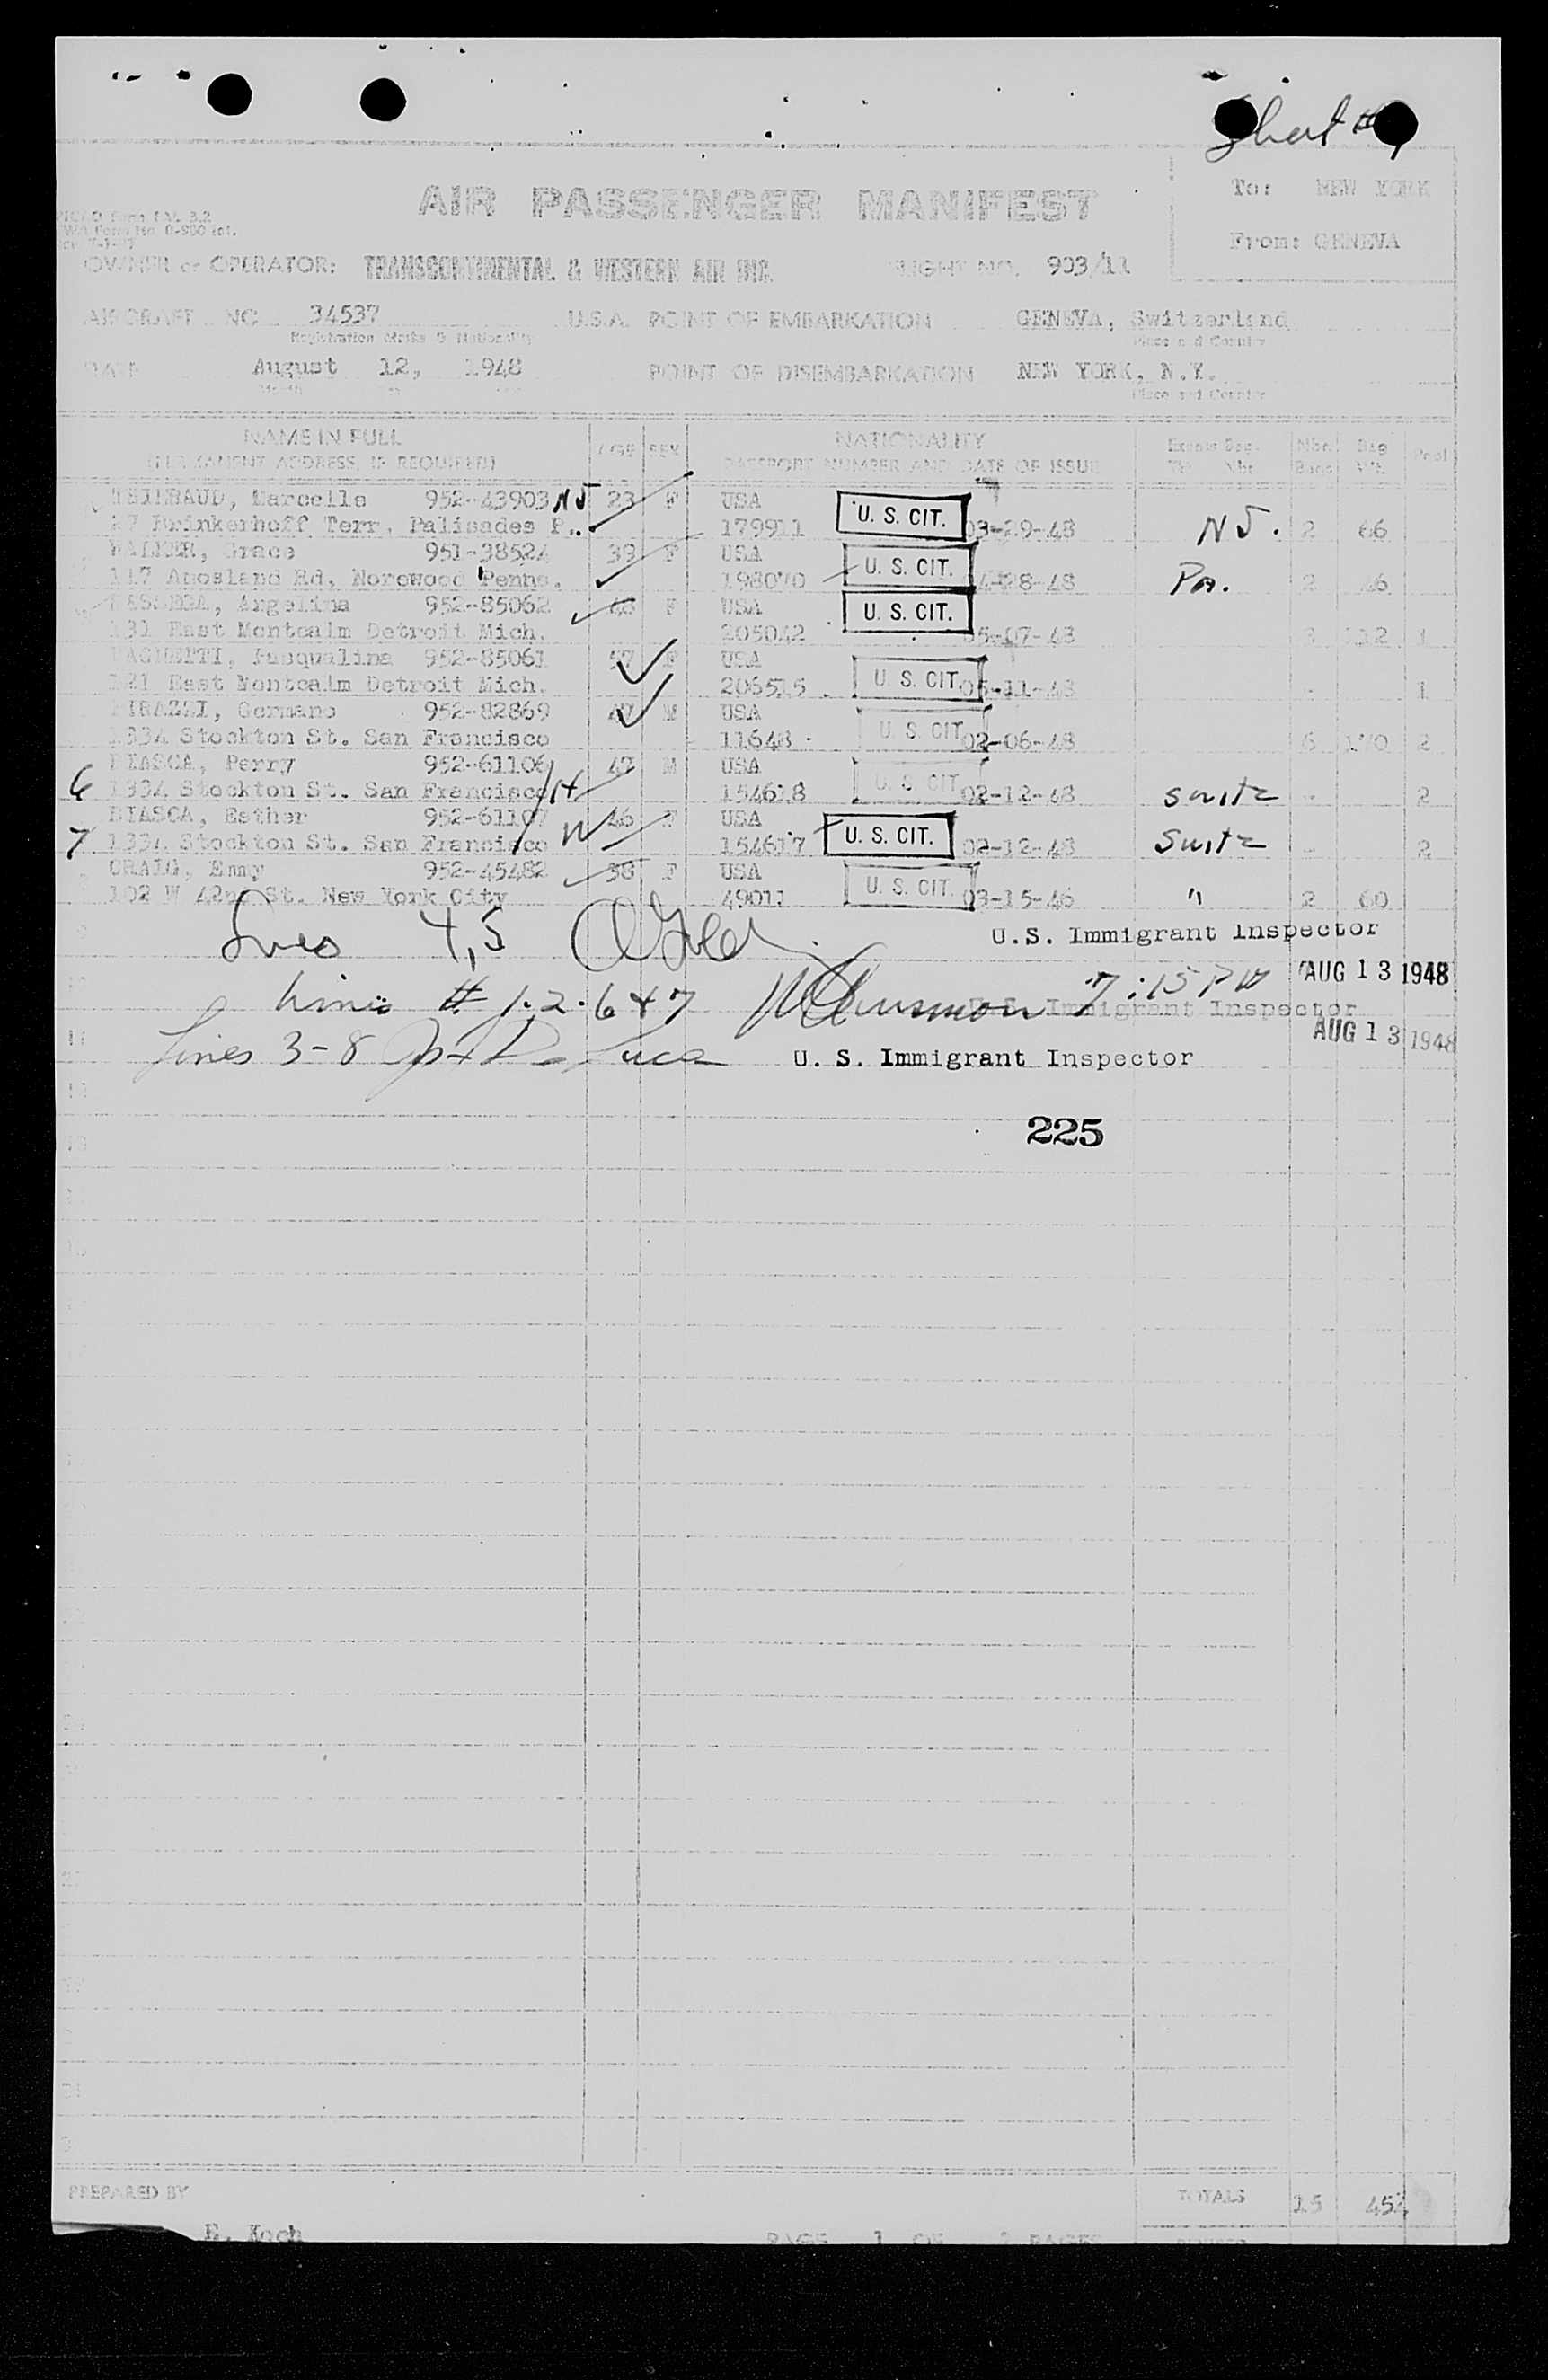 Sheet #
AIR PASSENGER MANIFEST
To: NEW YORK
From: GENEVA
OWNER or OPERATOR: TRANSCONTINENTAL & WESTERN AIR INC. FLIGHT NO. 903/11
AIRCRAFT NO 34537 U.S.A. POINT OF EMBARKATION GENEVA, Switzerland
Registration Marks & Nationality Place and Country
DATE August 12, 1948 POINT OF DISEMBARKATION NEW YORK, N.Y.
Month Place and Country
NAME IN FULL AGE SEX NATIONALITY Nbr. Bag Pool
(PERMANENT ADDRESS, IF REQUIRED) PASSPORT NUMBER AND DATE OF ISSUE Nbr Bags Wt.
Marcelle 952-43903 NJ 23 F USA
27 Brinkerhoff Terr. Palisades P.. 179911 U. S. CIT. 03-29-48 NJ. 2 66
WALKER, Grace 951-38524 39 F USA
Rd, Norewood Penna. 198070 U. S. CIT. 4-28-48 Pa. 2 46
Angelina 952-85062 48 F USA
131 East Montcalm Detroit Mich. 205042 U. S. CIT. 05-07-48 3 112 1
Pasqualina 952-85061 57 F USA
121 East Montcalm Detroit Mich. 206515 U. S. CIT. 05-11-48 - 1
Germano 952-82869 47 M USA
1334 Stockton St. San Francisco 11648 U. S. CIT. 02-06-48 6 170 2
BIASCA, Perry 952-61106 47 M USA
6 1334 Stockton St. San Francisco H 154618 U. S. CIT. 02-12-48 Switz - 2
BIASCA, Esther 952-61107 46 F USA
7 1334 Stockton St. San Francisco W 154617 U. S. CIT. 02-12-48 Switz - 2
CRAIG, Emmy 952-45482 38 F USA
102 W 42nd St. New York City 49011 U. S. CIT. 03-15-46 " 2 60
Lines 4,5 U.S. Immigrant Inspector
Lines # 1·2·6 + 7 7:15 PM AUG 13 1948
U. S. Immigrant Inspector
AUG 13 1948
Lines 3-8 U. S. Immigrant Inspector
225
PREPARED BY TOTALS 15 454
E. Koch PAGE 1 OF 2 PAGES